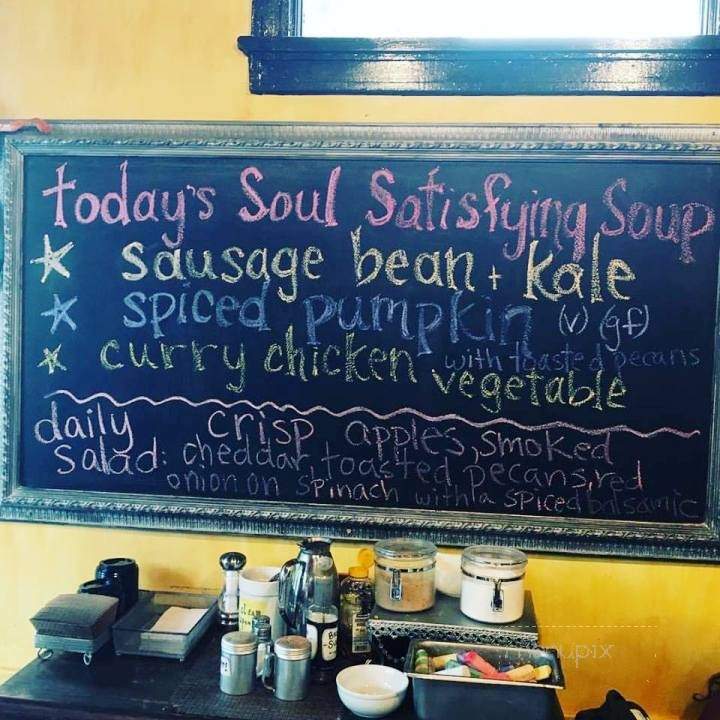 today's Soul Satisfying Soup
sausage bean + kale
spiced pumpkin (v) (gf)
with toasted pecans
curry chicken vegetable
daily salad: crisp apples, smoked
cheddar, toasted pecans, red
onion on spinach with a spiced balsamic
menupix